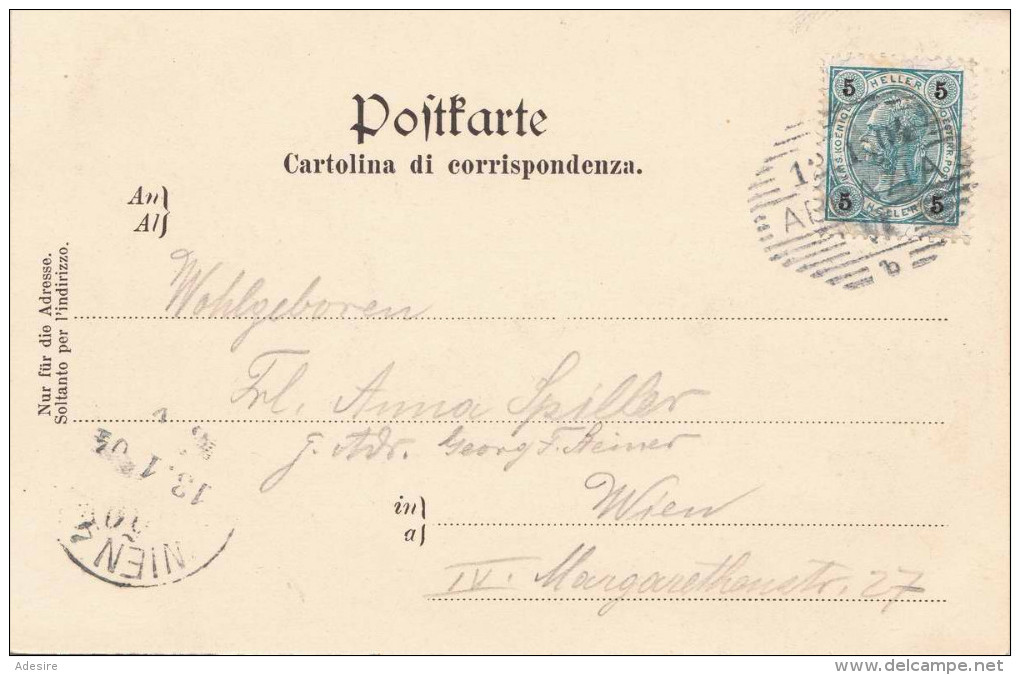 Postkarte
Cartolina di corrispondenza.
5 HELLER 5
KAIS. KOENIGL. OESTERR. POST
5 HELLER 5
12
AB ZIA
b
An
Al
Nur für die Adresse.
Soltanto per l'indirizzo.
Wohlgeboren
Frl. Anna Spiller
p. Adr. Georg F. Reiner
in
a
Wien
IV. Margarethenstr. 27
13.1 04
WIEN
Adesire
www.delcampe.net